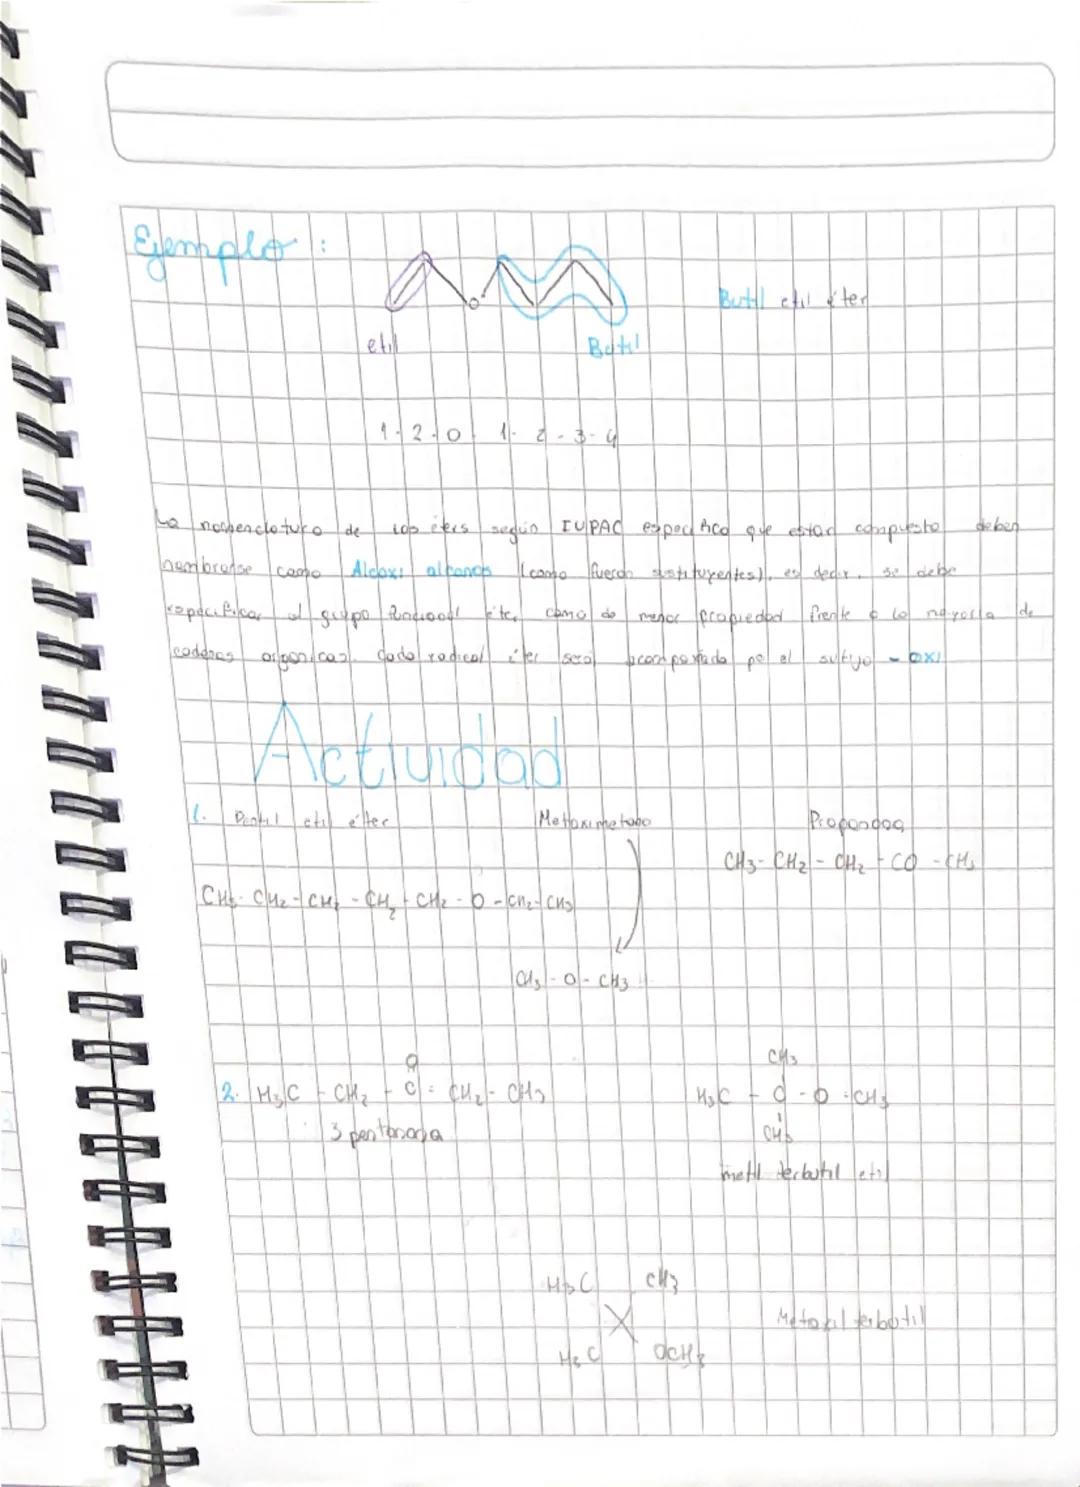 Ejemplo :
O
Butil etil éter
etil
Butil
1 - 2 - O 1 - 2 - 3 - 4
La nomenclatura de los éters según IUPAC especifica que estan compuesto deben
nombrarse como Alcoxi alcanos (como fueron sustituyentes), es decir, se debe
especificar el grupo funcional éter como de menor propiedad frente a la mayoria de
cadenas organicas. Cada radical éter será acompañada por el sufijo - oxi
Actividad
1. Pentil etil éter Metoximetano
CH3 - CH2 - CH2 - CO - CH3
CH3 - CH2 - CH2 - CH2 - CH2 - O - CH2 - CH3
CH3 - O - CH3
O
CH3
2. H3C - CH2 - C = CH2 - CH3
H3C - C - O - CH3
CH3
metil terbutil etil
H3C CH3
H3C OCH3